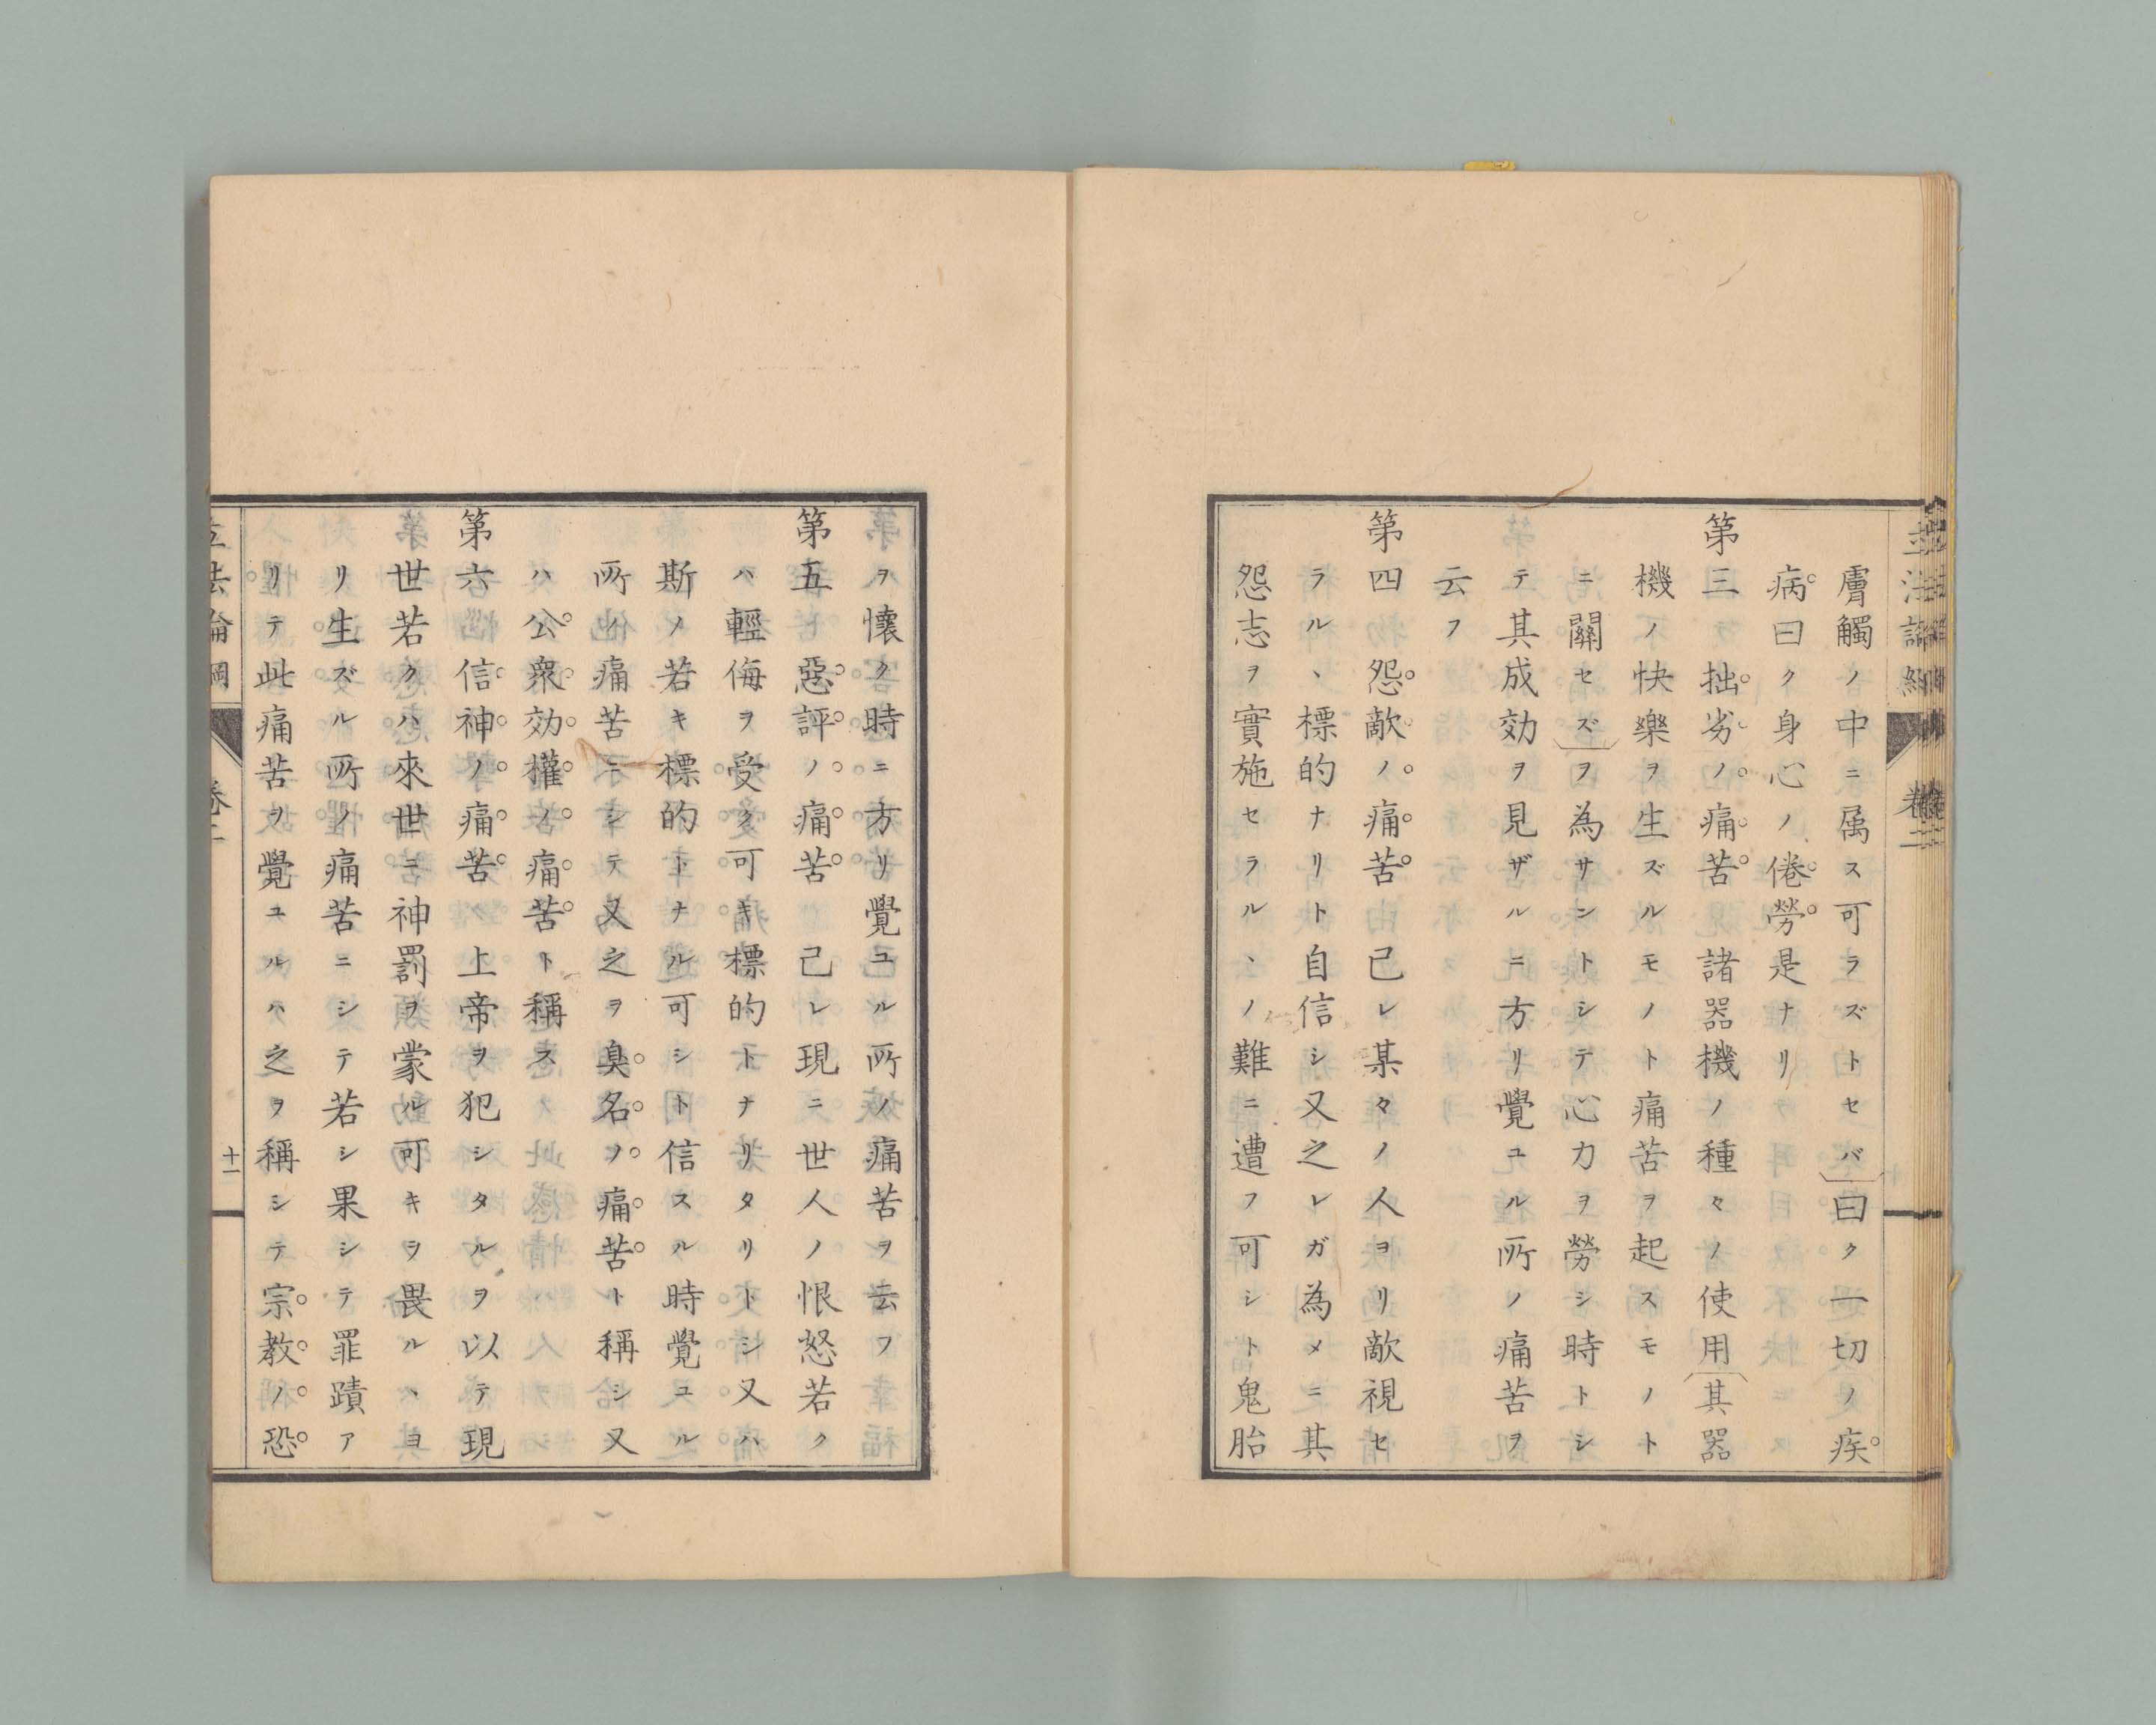 立法論綱 卷二
膚觸ノ中ニ属ス可ラズトセバ︶曰ク一切ノ疾
病曰ク身心ノ倦勞是ナリ
第三 拙劣ノ痛苦 諸器機ノ種々ノ使用︵其器
機ノ快樂ヲ生ズルモノト痛苦ヲ起スモノト
ニ關セズ︶ヲ為サントシテ心力ヲ勞シ時トシ
テ其成効ヲ見ザルニ方リ覺ユル所ノ痛苦ヲ
云フ
第四 怨敵ノ痛苦 己レ某々ノ人ヨリ敵視セ
ラルヽ標的ナリト自信シ又之レガ為メニ其
怨志ヲ實施セラルヽノ難ニ遭フ可シト鬼胎
ヲ懷ク時ニ方リ覺ユル所ノ痛苦ヲ云フ
第五 惡評ノ痛苦 己レ現ニ世人ノ恨怒若ク
ハ輕侮ヲ受ク可キ標的トナリタリトシ又ハ
斯ノ若キ標的トナル可シト信スル時覺ユル
所ノ痛苦ニシテ又之ヲ臭名ノ痛苦ト稱シ又
ハ公衆効權ノ痛苦ト稱ス
第六 信神ノ痛苦 上帝ヲ犯シタルヲ以テ現
世若クハ來世ニ神罰ヲ蒙ル可キヲ畏ルヽヨ
リ生ズル所ノ痛苦ニシテ若シ果シテ罪蹟ア
リテ此痛苦ヲ覺ユルハ之ヲ稱シテ宗教ノ恐
立法論綱 卷二 十一